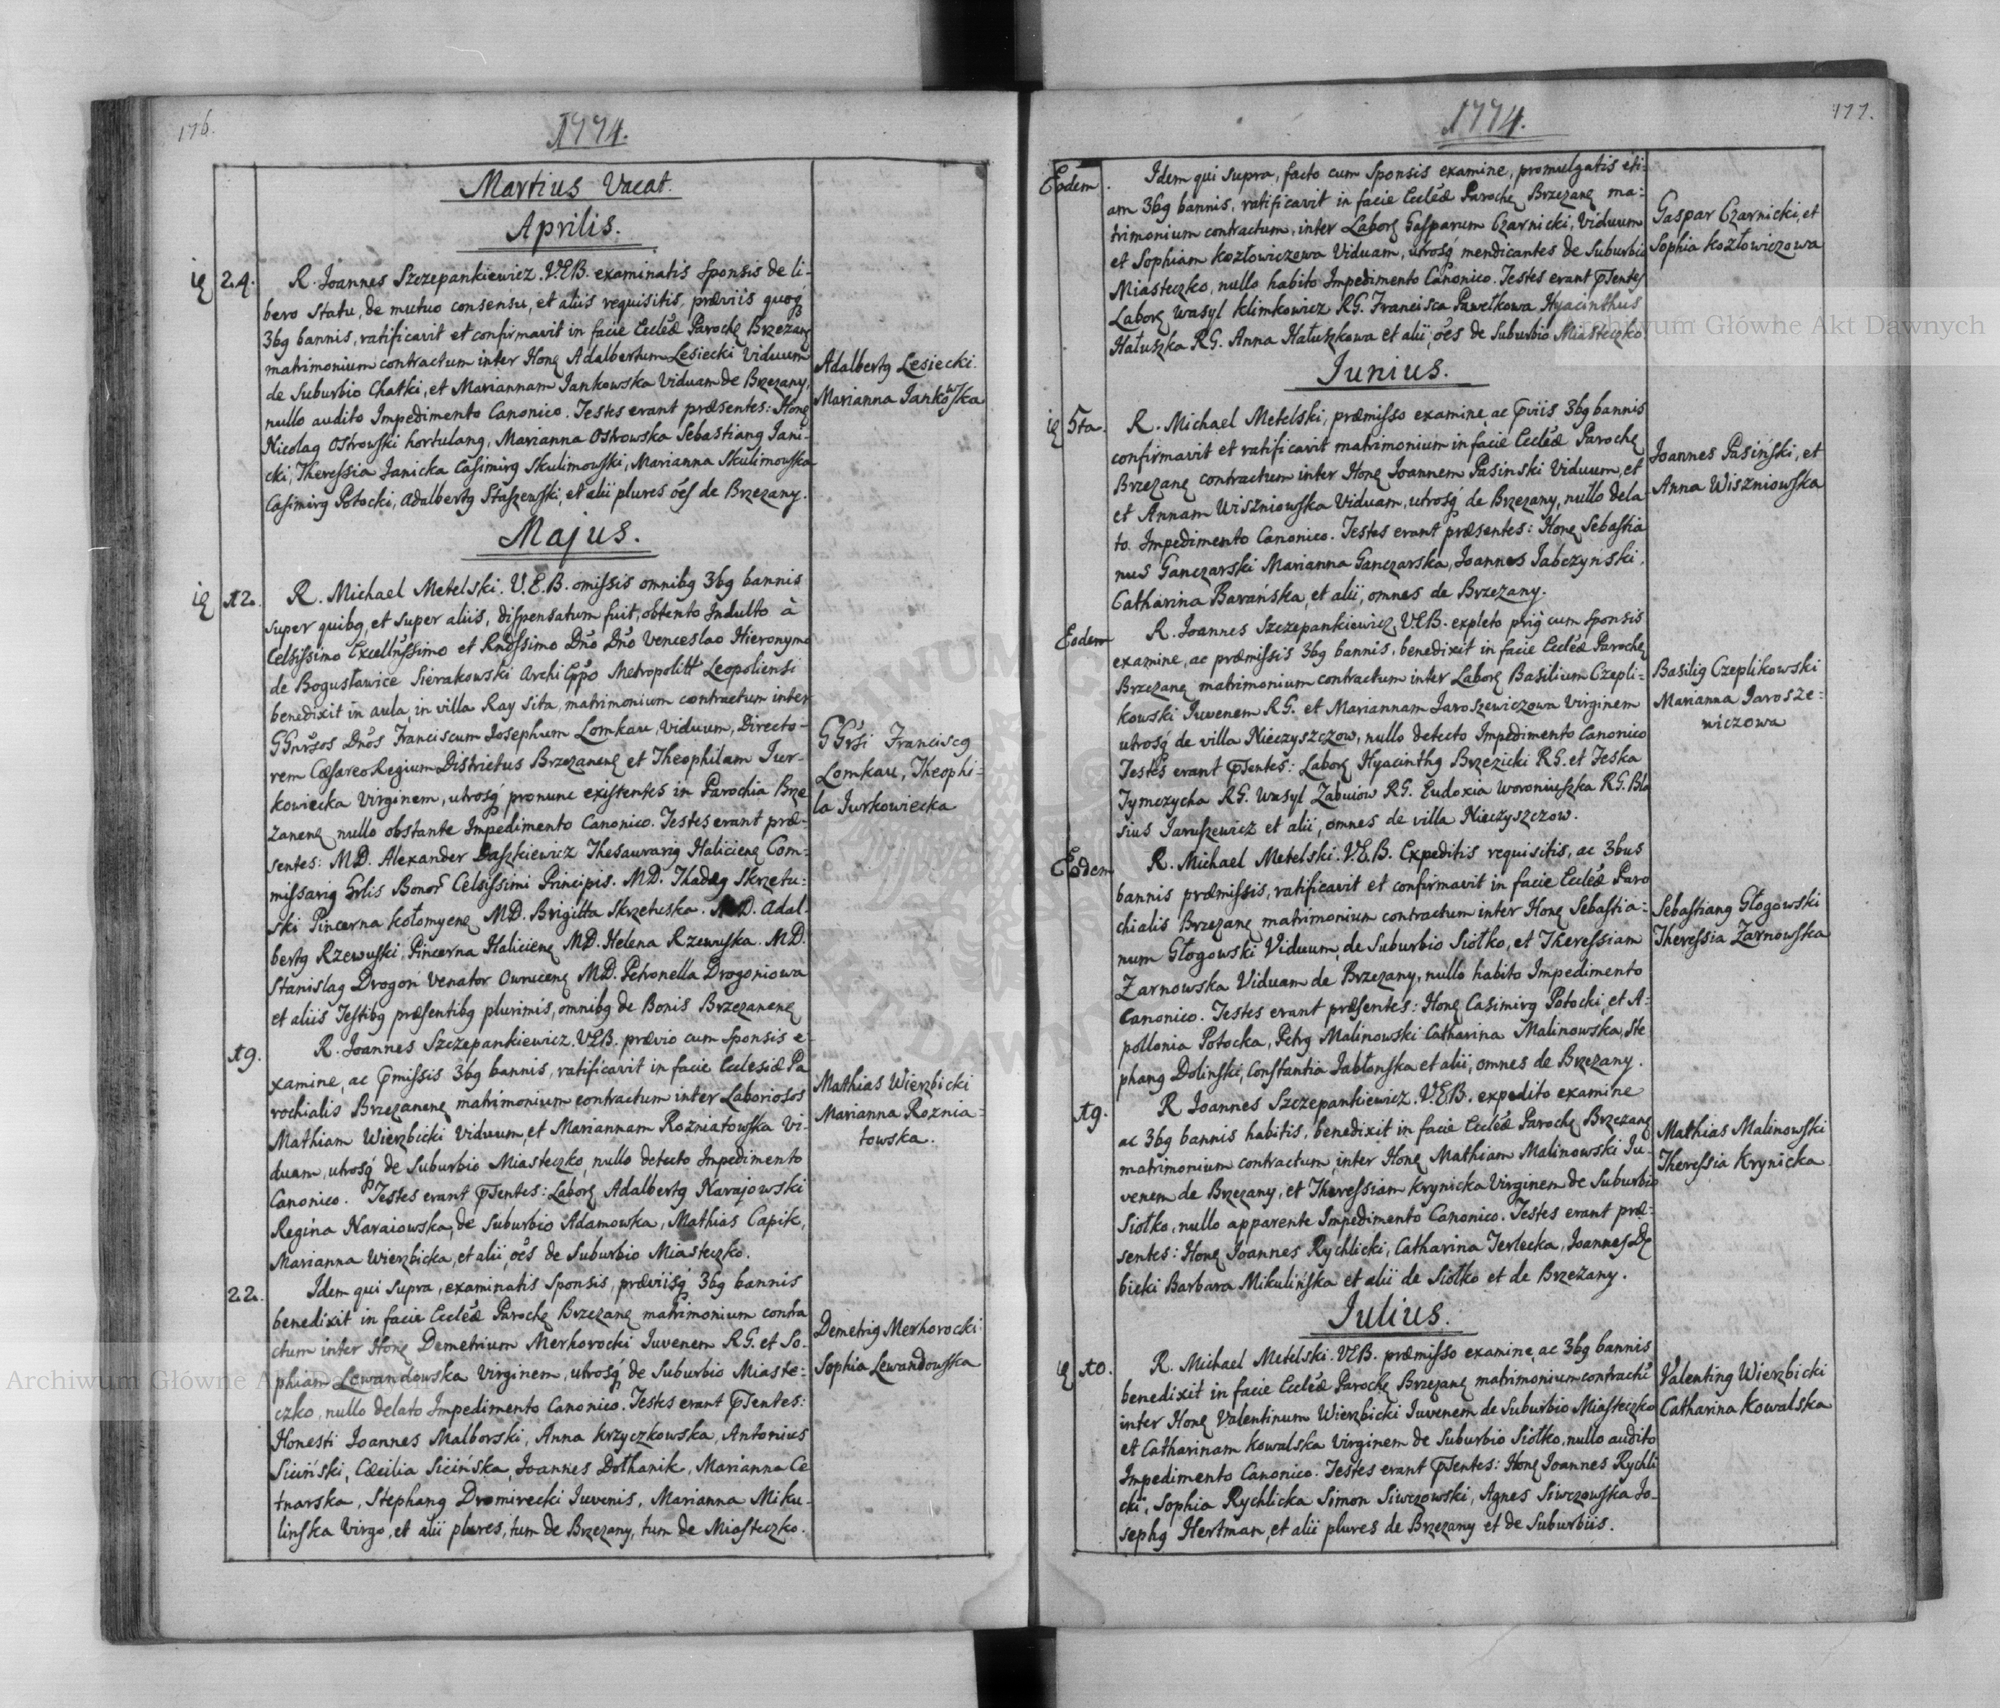 176.
1774.
Martius Vacat.
Aprilis.
ię 24. R. Joannes Szczepankiewicz. V.E.B. examinatis Sponsis de li-
bero Statu, de mutuo consensu, et aliis requisitis, præviis quoqȝ
3bg bannis, ratificavit et confirmavit in facie Ecclêæ Parochę Brzezanę
matrimonium contractum inter Honę Adalbertum Lesiecki Viduum
de Suburbio Chatki, et Mariannam Jankowska Viduam de Brzezany,
nullo audito Impedimento Canonico. Testes erant præsentes: Honę
Nicolag Ostrowski hortulang, Marianna Ostrowska Sebastiang Jani-
cki, Theressia Janicka Casimirg Skulimowski, Marianna Skulimowska
Casimirg Potocki, Adalbertg Staszewski, et alii plures ões de Brzezany.
Adalbertg Lesiecki.
Marianna Jankowska
Majus.
ię 12. R. Michael Metelski. V.E.B. omissis omnibg 3bg bannis
super quibg, et super aliis, dispensatum fuit, obtento Indulto à
Celsissimo Excellm̃ssimo et Rm̃ossimo Dño Dño Venceslao Hieronymo
de Bogusławice Sierakowski Archi Eppo Metropolitt Leopoliensi
benedixit in aula, in villa Ray sita, matrimonium contractum inter
GGnr̃sos Dños Franciscum Josephum Lomkau, Viduum, Directo-
rem Cæsareo Regium Districtus Brzezanenę et Theophilam Jur-
kowiecka Virginem, utrosq́ pronunc existentes in Parochia Brze
zanenę nullo obstante Impedimento Canonico. Testes erant præ-
sentes: MD. Alexander Daszkiewicz Thesaurarig Halicienę Com-
missarig Grlis Bonor̃ Celsissimi Principis. M.D. Thadæg Skrzetu-
ski Pincerna Kołomyenę MD. Brigitta Skrzetuska. M.D. Adal-
bertg Rzewuski Pincerna Halicienę MD. Helena Rzewuska. M.D.
Stanislag Drogoń Venator Owrucenę MD. Petronella Drogoniowa
et aliis Testibg præsentibg plurimis, omnibg de Bonis Brzezanenę
GGr̃si Franciscg
Lomkau, Theophi-
la Jurkowiecka
19. R. Joannes Szczepankiewicz. VEB. prævio cum Sponsis e-
xamine, ac p̃missis 3bg bannis, ratificavit in facie Ecclesiæ Pa
rochialis Brzezanenę matrimonium contractum inter Laboriosos
Mathiam Wierzbicki Viduum, et Mariannam Rozniatowska Vi-
duam, utrosq́ de Suburbio Miasteczko, nullo detecto Impedimento
Canonico. Testes erant p̃sentes: Laborę Adalbertg Narajowski
Regina Naraiowska, de Suburbio Adamowka, Mathias Capik,
Marianna Wierzbicka, et alii, ões de Suburbio Miasteczko.
Mathias Wierzbicki
Marianna Roznia-
towska.
22. Idem qui supra, examinatis Sponsis, præviisq́ 3bg bannis
benedixit in facie Ecclêæ Parochę Brzezanę matrimonium contra
ctum inter Honę Demetrium Merhorocki Juvenem R.G. et So-
phiam Lewandowska Virginem, utrosq́ de Suburbio Miaste-
czko, nullo delato Impedimento Canonico. Testes erant p̃sentes:
Honesti Joannes Malborski, Anna Krzyczkowska, Antonius
Siciński, Cæcilia Sicińska, Joannes Dothanik, Marianna Ce
tnarska, Stephang Dromirecki Juvenis, Marianna Miku-
linska Virgo, et alii plures, tum de Brzezany, tum de Miasteczko.
Demetrig Merhorocki
Sophia Lewandowska
177.
1774.
Eodem. Idem qui supra, facto cum Sponsis examine, promulgatis eti-
am 3bg bannis, ratificavit in facie Ecclêæ Parochę Brzezanę ma-
trimonium contractum, inter Laborę Gasparum Czarnicki, Viduum
et Sophiam Kozłowiczowa Viduam, utrosq́ mendicantes de Suburbio
Miasteczko, nullo habito Impedimento Canonico. Testes erant p̃sentes
Laborę Wasyl Klimkowicz R.G. Francisca Pawełkowa Hyacinthus
Hałuszka R.G. Anna Hałuszkowa et alii, ões de Suburbio Miasteczko
Gaspar Czarnicki, et
Sophia Kozłowiczowa
Junius.
ię 5ta. R. Michael Metelski, præmisso examine ac p̃viis 3bg bannis
confirmavit et ratificavit matrimonium in facie Ecclêæ Parochę
Brzezanę contractum inter Honę Joannem Pasinski Viduum, et
et Annam Wiszniowska Viduam, utrosq́ de Brzezany, nullo dela
to Impedimento Canonico. Testes erant præsentes: Honę Sebastia
nus Ganczarski Marianna Ganczarska, Joannes Jabczyński,
Catharina Barańska, et alii, omnes de Brzezany.
Joannes Pasiński, et
Anna Wiszniowska
Eodem R. Joannes Szczepankiewicz, VEB. expleto prig cum Sponsis
examine, ac præmissis 3bg bannis, benedixit in facie Ecclêæ Parochę
Brzezanę matrimonium contractum inter Laborę Basilium Czepli-
kowski Juvenem R.G. et Mariannam Jaroszewiczowa Virginem
utrosq́ de villa Nieczyszczow, nullo detecto Impedimento Canonico
Testes erant p̃sentes: Laborę Hyacinthg Brzezicki R.G. et Teska
Tymczycha R.G. Wasyl Zabuiow R.G. Eudoxia Woroniuszka R.G. Bla
sius Jaruszewicz et alii, omnes de villa Nieczyszczow.
Basilig Czeplikowski
Marianna Jarosze-
wiczowa
Eodem R. Michael Metelski. V.E.B. Expeditis requisitis, ac 3bus
bannis præmissis, ratificavit et confirmavit in facie Ecclêæ Paro
chialis Brzezanę matrimonium contractum inter Honę Sebastia-
num Głogowski Viduum, de Suburbio Siołko, et Theressiam
Żarnowska Viduam de Brzezany, nullo habito Impedimento
Canonico. Testes erant præsentes: Honę Casimirg Potocki, et A-
pollonia Potocka, Petrg Malinowski Catharina Malinowska, Ste
phang Dolinski, Constantia Jabłonska et alii, omnes de Brzezany.
Sebastiang Głogowski
Theressia Zarnowska
19. R Joannes Szczepankiewicz. V.E.B. expedito examine
ac 3bg bannis habitis, benedixit in facie Ecclêæ Parochę Brzezanę
matrimonium contractum inter Honę Mathiam Malinowski Ju-
venem de Brzezany, et Theressiam Krynicka Virginem de Suburbio
Siołko, nullo apparente Impedimento Canonico. Testes erant præ-
sentes: Honę Joannes Rychlicki, Catharina Terlecka, Joannes Dę
bicki Barbara Mikulińska et alii de Siołko et de Brzezany.
Mathias Malinowski
Theressia Krynicka
Julius.
ię 10. R. Michael Metelski. VEB. præmisso examine, ac 3bg bannis
benedixit in facie Ecclêæ Parochę Brzezanę matrimonium contractũ
inter Honę Valentinum Wierzbicki Juvenem de Suburbio Miasteczko
et Catharinam Kowalska Virginem de Suburbio Siołko, nullo audito
Impedimento Canonico. Testes erant p̃sentes: Honę Joannes Rychli
cki, Sophia Rychlicka Simon Siwczowski, Agnes Siwczowska Jo-
sephg Hertman, et alii plures de Brzezany et de Suburbiis.
Valenting Wierzbicki
Catharina Kowalska
Archiwum Główne Akt Dawnych
Archiwum Główne Akt Dawnych